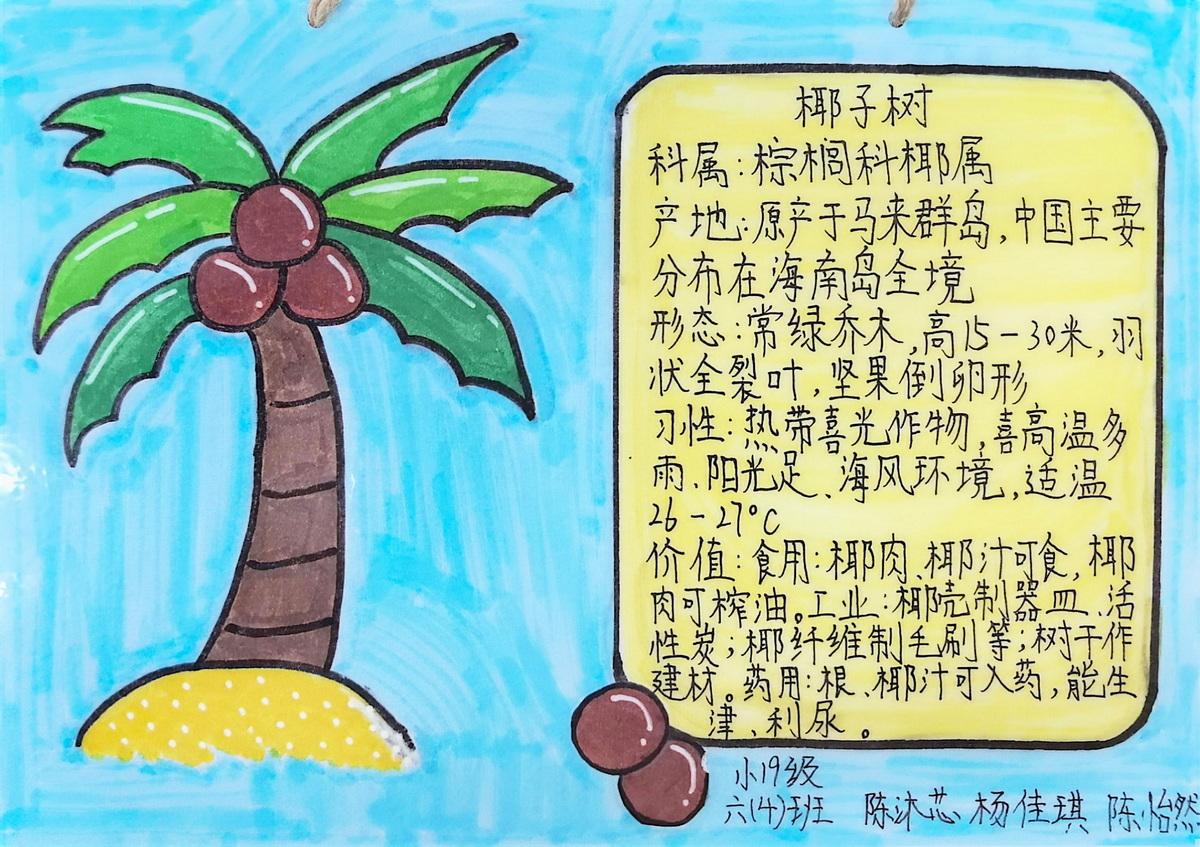 椰子树
科属:棕榈科椰属
产地:原产于马来群岛,中国主要
分布在海南岛全境
形态:常绿乔木,高15-30米,羽
状全裂叶,坚果倒卵形
习性:热带喜光作物,喜高温多
雨、阳光足、海风环境,适温
26-27°C
价值:食用:椰肉、椰汁可食,椰
肉可榨油。工业:椰壳制器皿、活
性炭;椰纤维制毛刷等;树干作
建材。药用:根、椰汁可入药,能生
津、利尿。
小19级
六(4)班 陈沐芯 杨佳琪 陈怡然